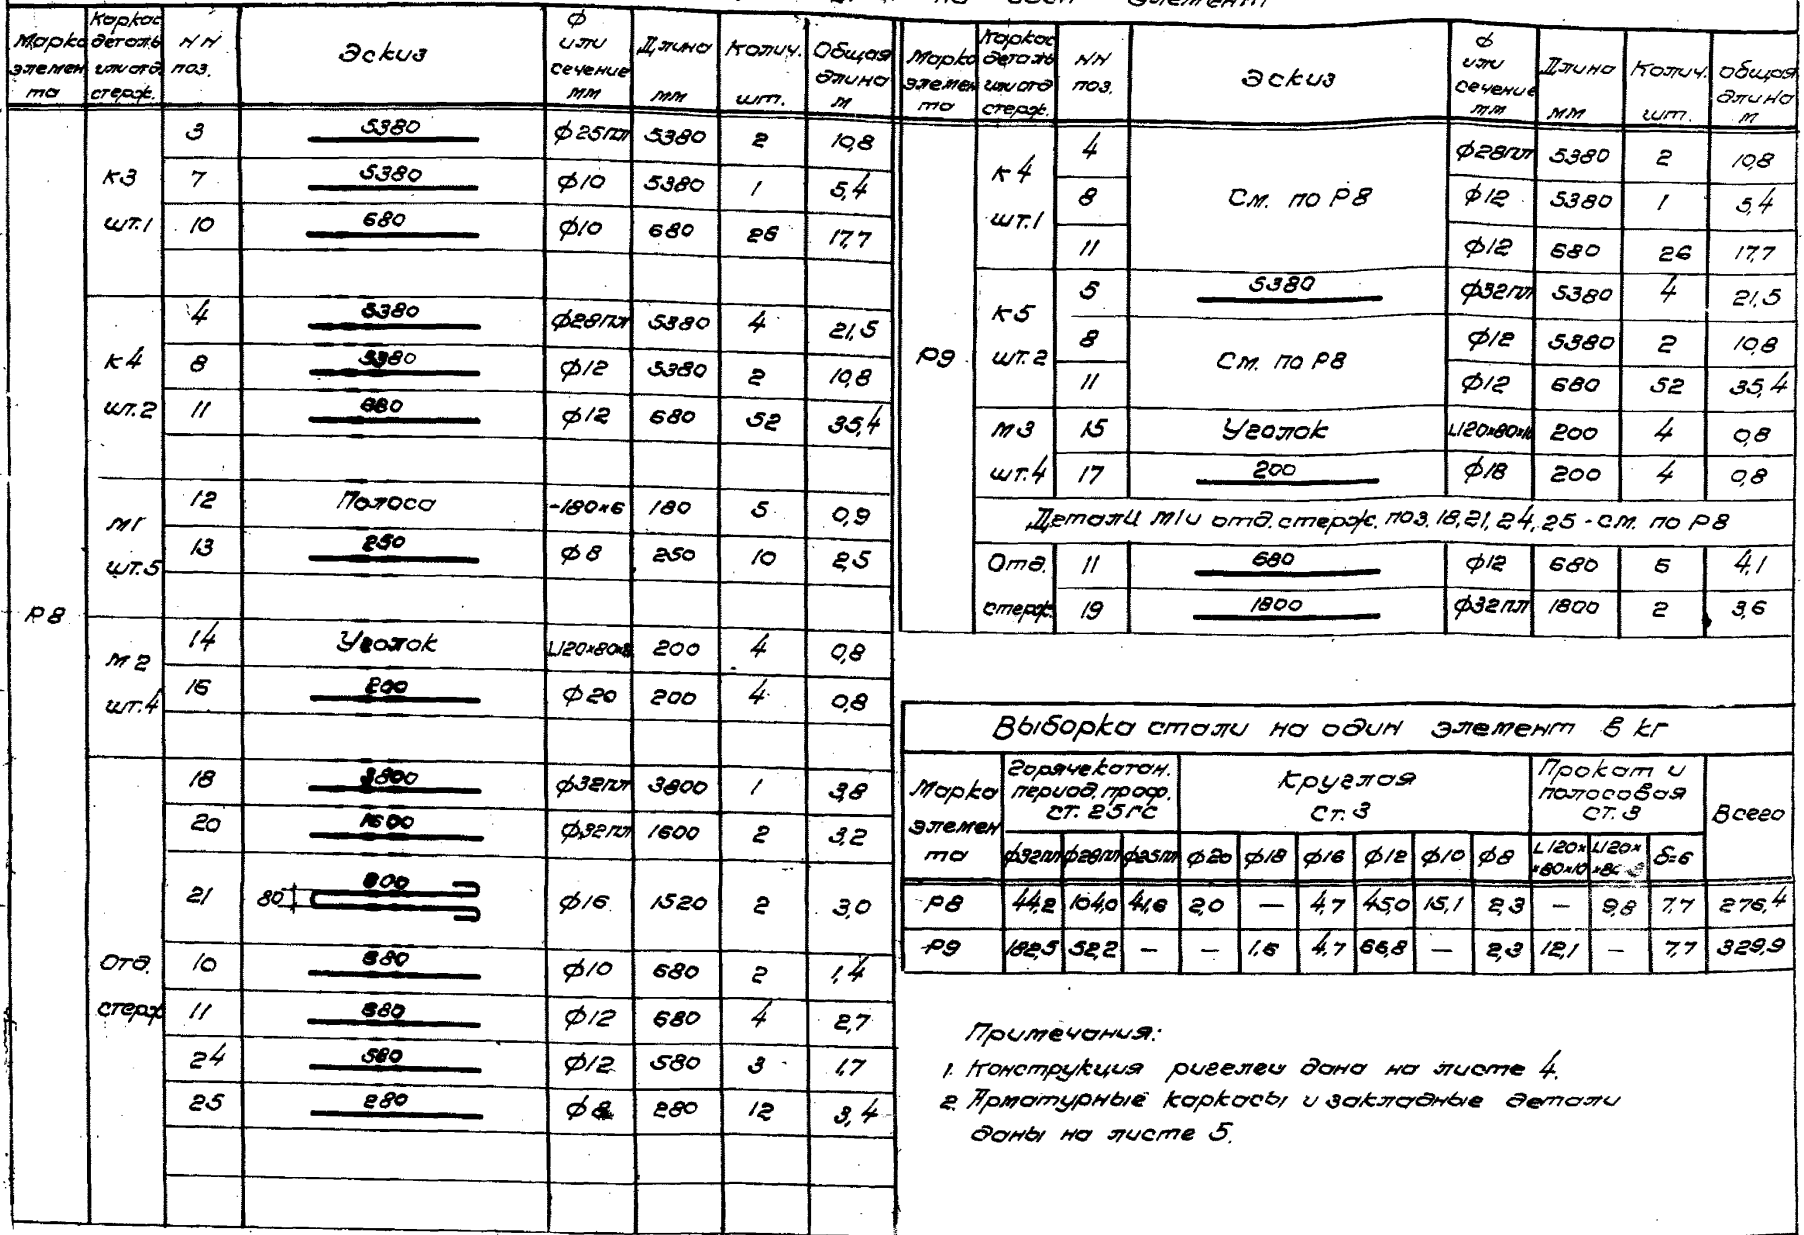 на один элемент
Марка элемента | Каркас деталь или отд. стерж. | NN поз. | Эскиз | ф или сечение мм | Длина мм | Колич. шт. | Общая длина м
Р8
К3 шт.1
3 | 5380 | ф25пл | 5380 | 2 | 10,8
7 | 5380 | ф10 | 5380 | 1 | 5,4
10 | 680 | ф10 | 680 | 26 | 17,7
К4 шт.2
4 | 5380 | ф28пл | 5380 | 4 | 21,5
8 | 5380 | ф12 | 5380 | 2 | 10,8
11 | 680 | ф12 | 680 | 52 | 35,4
М1 шт.5
12 | Полоса | -180×6 | 180 | 5 | 0,9
13 | 250 | ф8 | 250 | 10 | 2,5
М2 шт.4
14 | Уголок | L120×80×8 | 200 | 4 | 0,8
16 | 200 | ф20 | 200 | 4 | 0,8
Отд. стерж
18 | 3800 | ф32пл | 3800 | 1 | 3,8
20 | 1600 | ф32пл | 1600 | 2 | 3,2
21 | 80 800 | ф16 | 1520 | 2 | 3,0
10 | 680 | ф10 | 680 | 2 | 1,4
11 | 680 | ф12 | 680 | 4 | 2,7
24 | 580 | ф12 | 580 | 3 | 1,7
25 | 280 | ф8 | 280 | 12 | 3,4
Марка элемента | Каркас деталь или отд стерж. | NN поз. | Эскиз | ф или сечение мм | Длина мм | Колич. шт. | Общая длина м
Р9
К4 шт.1
4 | См. по Р8 | ф28пл | 5380 | 2 | 10,8
8 | ф12 | 5380 | 1 | 5,4
11 | ф12 | 680 | 26 | 17,7
К5 шт.2
5 | 5380 | ф32пл | 5380 | 4 | 21,5
8 | См. по Р8 | ф12 | 5380 | 2 | 10,8
11 | ф12 | 680 | 52 | 35,4
М3 шт.4
15 | Уголок | L120×80×10 | 200 | 4 | 0,8
17 | 200 | ф18 | 200 | 4 | 0,8
Детали М1 и отд. стерж. поз. 18, 21, 24, 25 - см. по Р8
Отд. стерж.
11 | 680 | ф12 | 680 | 6 | 4,1
19 | 1800 | ф32пл | 1800 | 2 | 3,6
Выборка стали на один элемент в кг
Марка элемента | Горячекатан. период. проф. ст. 25ГС | Круглая ст. 3 | Прокат и полосовая ст. 3 | Всего
ф32пл | ф28пл | ф25пл | ф20 | ф18 | ф16 | ф12 | ф10 | ф8 | L120××80×10 | L120××80×8 | δ=6
Р8 | 44,2 | 104,0 | 41,6 | 2,0 | — | 4,7 | 45,0 | 15,1 | 2,3 | — | 9,8 | 7,7 | 276,4
Р9 | 182,5 | 52,2 | — | — | 1,6 | 4,7 | 66,8 | — | 2,3 | 12,1 | — | 7,7 | 329,9
Примечания:
1. Конструкция ригелей дана на листе 4.
2. Арматурные каркасы и закладные детали
даны на листе 5.